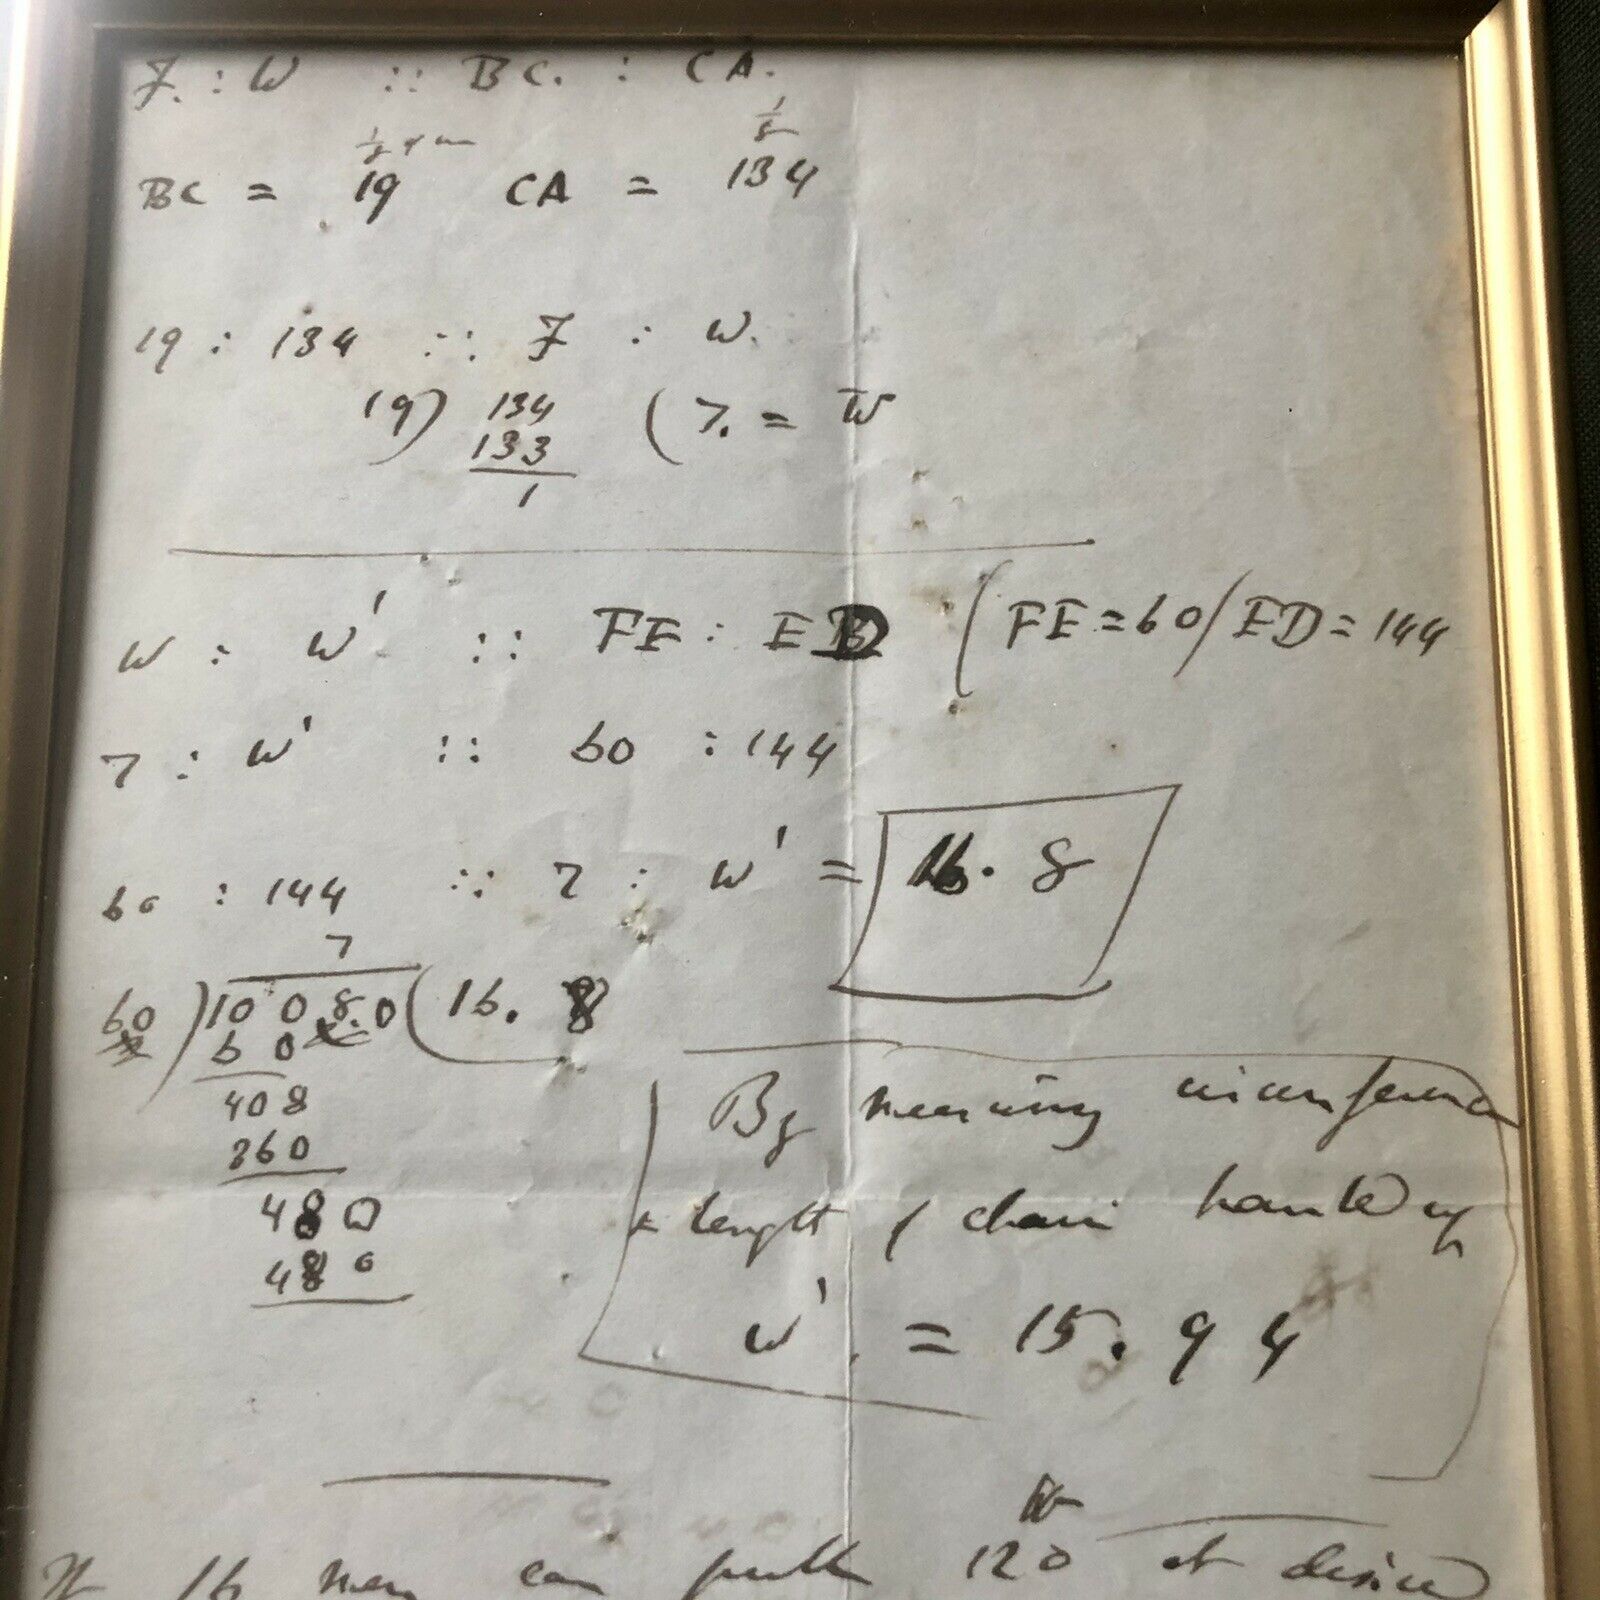 F. : W :: BC. : CA.
1/8 1/8
BC = 19 CA = 134
19 : 134 :: F : W.
19) 134 (7. = W
133
1
W : W' :: FE : ED (FE = 60 / ED = 144
7 : W' :: 60 : 144
60 : 144 :: 7 : W' = 16.8
7
60) 1008.0 (16.8
60
408
360
480
480
By measuring circumference
& length of chain hauled up
W' = 15.94
If 16 men can pull 120 at